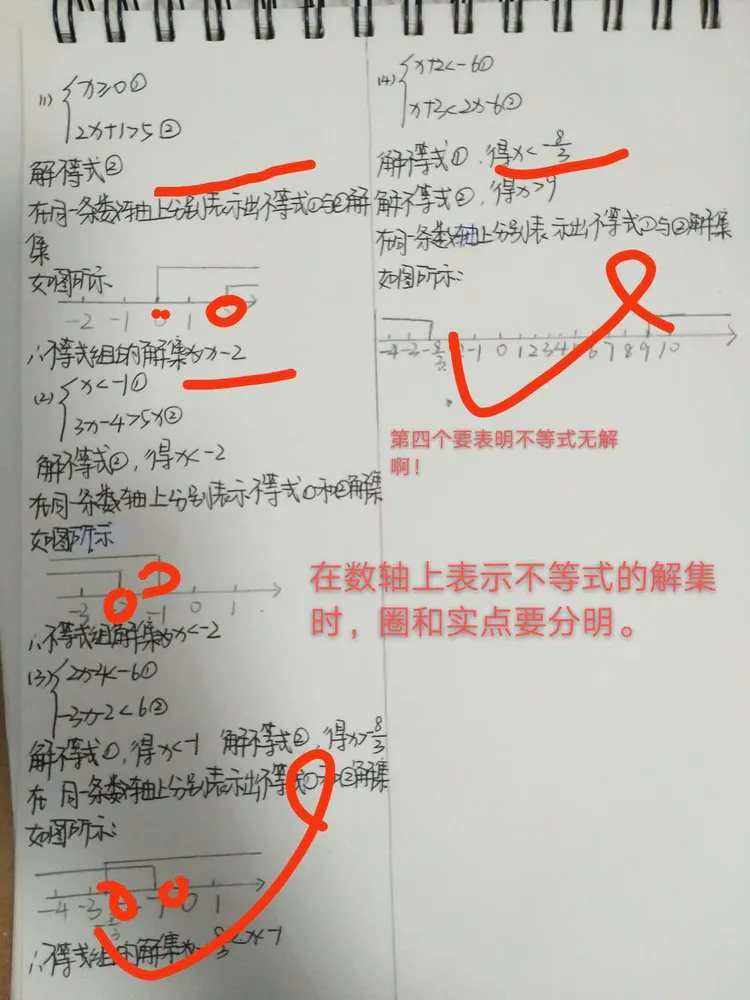 (1) { x≥0①
2x+1>5②
解不等式②
在同一条数轴上分别表示出不等式①与②解
集
如图所示
-2 -1 0 1
∴不等式组的解集为x-2
(2) { x<-1①
3x-4>5x②
解不等式②,得x<-2
在同一条数轴上分别表示不等式①和②解集
如图所示
-3 -1 0 1
∴不等式组解集为x<-2
(3) { 2x-4<-6①
-3x-2<6②
解不等式①,得x<-1 解不等式②,得x>-8/3
在同一条数轴上分别表示出不等式①和②解集
如图所示:
-4 -3 -8/3 -1 0 1
∴不等式组的解集为-8/3<x<-1
(4) { x+2<-6①
x+3<2x-6②
解不等式①,得x<-8/3
解不等式②,得x>9
在同一条数轴上分别表示出不等式①与②解集
如图所示:
-4 -3 -8/3 -2 -1 0 1 2 3 4 5 6 7 8 9 10
第四个要表明不等式无解
啊!
在数轴上表示不等式的解集
时,圈和实点要分明。